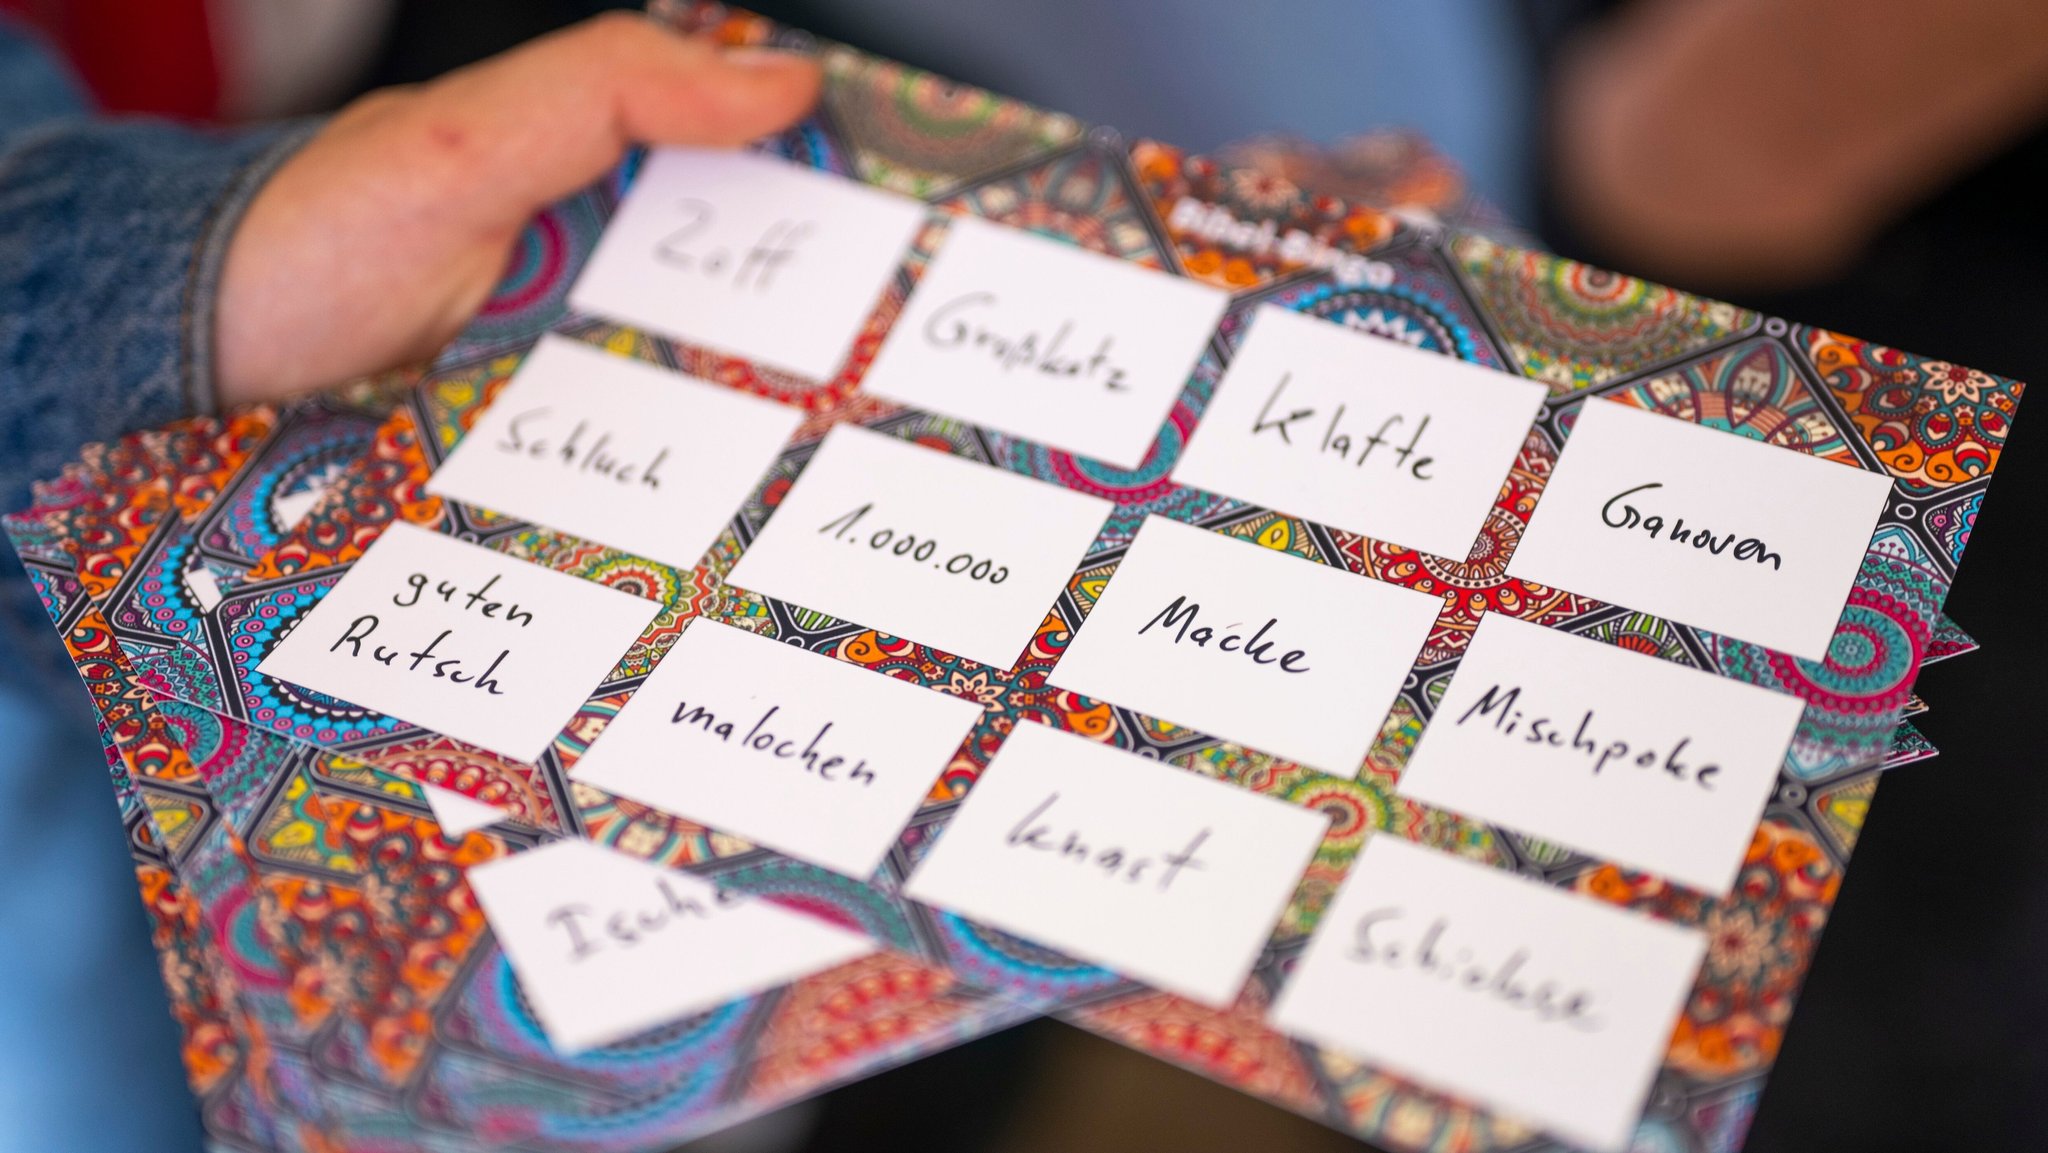 Bibel-Bingo
Zoff
Großkotz
Klafte
Ganoven
Schluch
1.000.000
Macke
Mischpoke
guten
Rutsch
malochen
Knast
Schickse